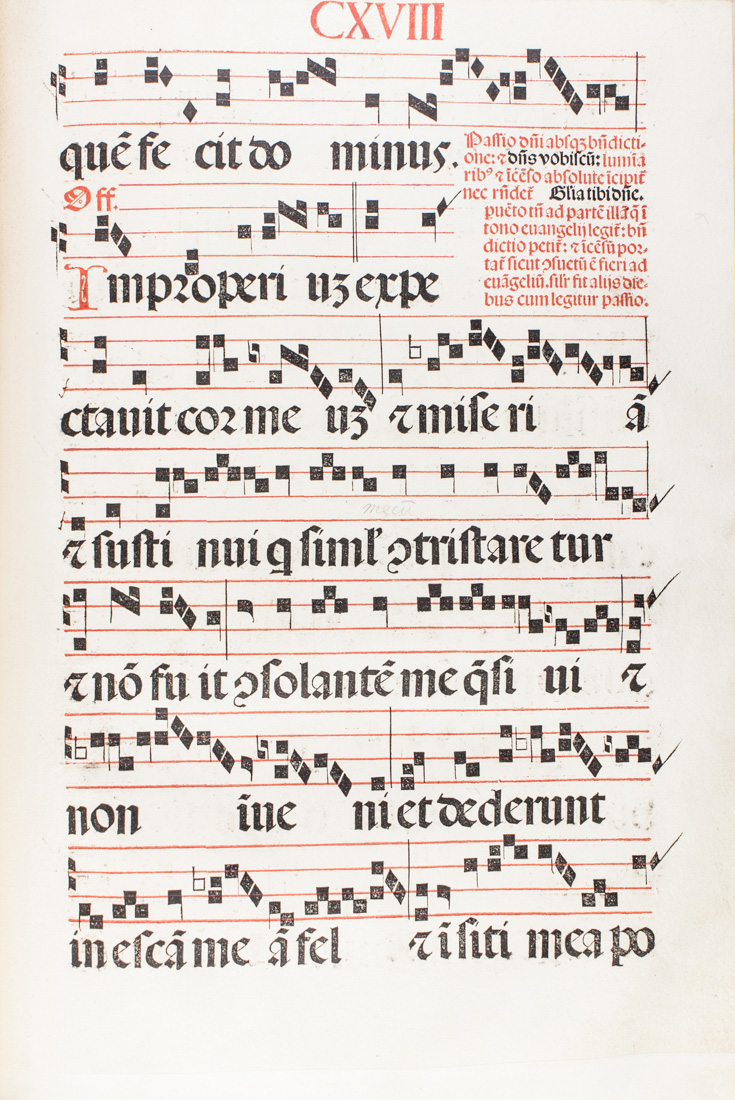 CXVIII
quē fe cit do minus.
Passio dñi absqꝫ bñdicti-
one: ⁊ dñs vobiscū: lumīa
ribꝰ ⁊ īcēso absolute īcipit̄
nec rñdet̄ Gl̃ia tibi dñe.
Off.
puēto tñ ad partē illā q̄ ī
tono euangelij legit̄: bñ
dictio petit̄: ⁊ īcēsū por-
tat̄ sicut ꝯsuetū ē fieri ad
euāgeliū. sil̃r fit alijs die-
bus cum legitur passio.
Improperi uꝫ expe
ctauit cor me uꝫ ⁊ mise ri ā
mecū
⁊ susti nui q simł ꝯtristare tur
⁊ nō fu it ꝯsolantē me q̄si ui ⁊
non īue ni et dederunt
in escā me ā fel ⁊ ī siti mea po